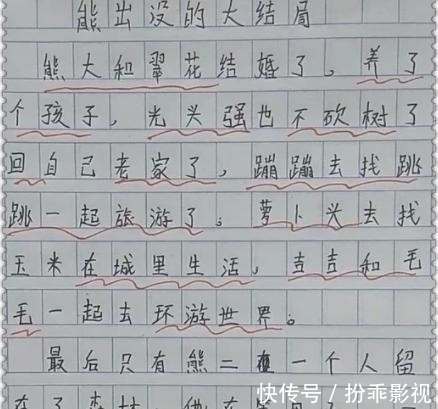 熊出没的大结局
熊大和翠花结婚了，养了
个孩子，光头强也不砍树了
回自己老家了，蹦蹦去找跳
跳一起旅游了。萝卜头去找
玉米在城里生活，吉吉和毛
毛一起去环游世界。
最后只有熊二一个人留
在了森林
快传号 / 扮乖影视